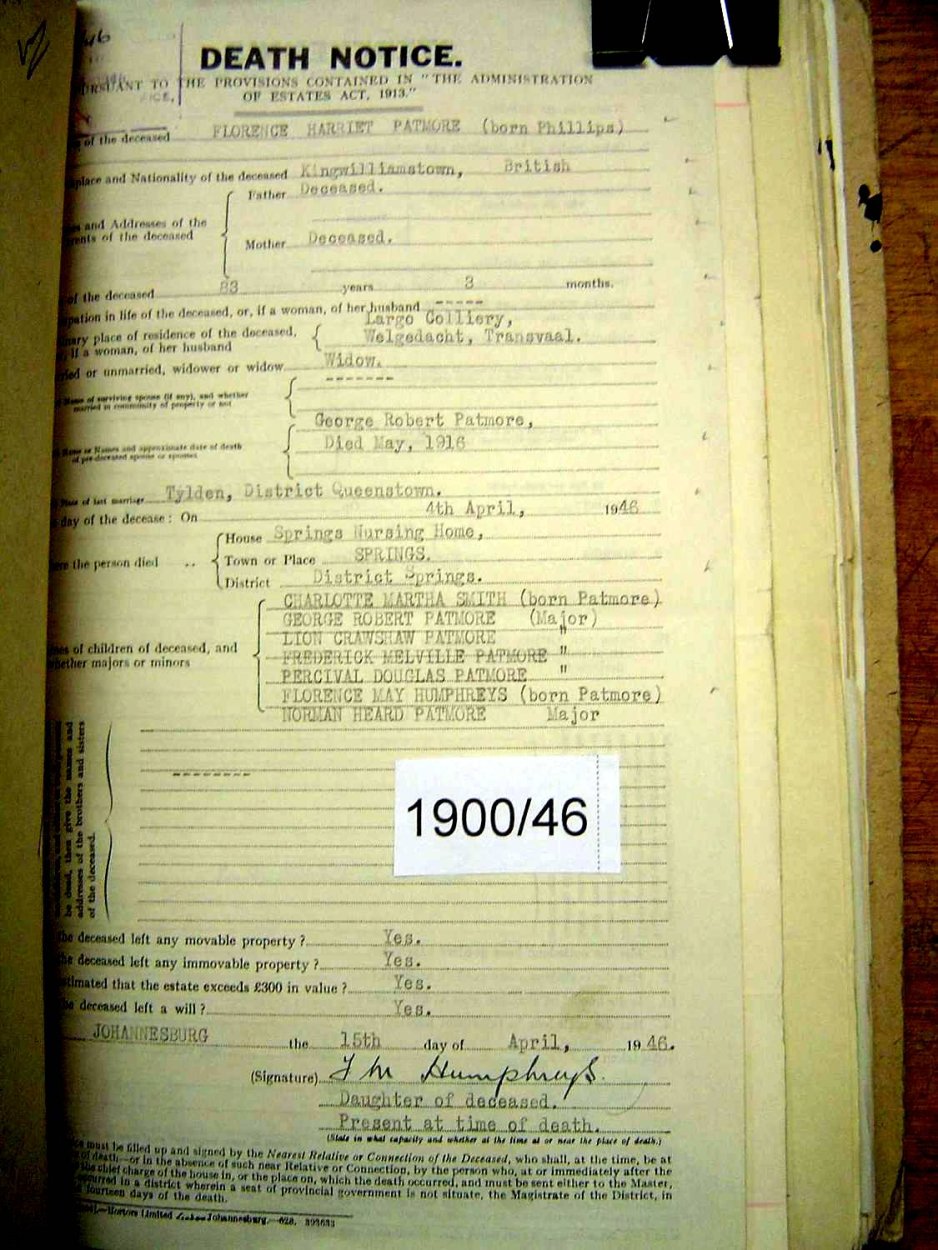 46
DEATH NOTICE.
TO THE PROVISIONS CONTAINED IN "THE ADMINISTRATION
OF ESTATES ACT, 1913."
of the deceased FLORENCE HARRIET PATMORE (born Phillips)
place and Nationality of the deceased Kingwilliamstown, British
Father Deceased.
and Addresses of the
of the deceased
Mother Deceased.
of the deceased 83 years 3 months.
in life of the deceased, or, if a woman, of her husband -----
Largo Colliery,
place of residence of the deceased,
if a woman, of her husband
Welgedacht, Transvaal.
or unmarried, widower or widow Widow.
Name of surviving spouse (if any), and whether
married in community of property or not
-------
George Robert Patmore,
Name or Names and approximate date of death
of pre-deceased spouse or spouses
Died May, 1916
Place of last marriage Tylden, District Queenstown.
day of the decease: On 4th April, 1946
House Springs Nursing Home,
the person died .. Town or Place SPRINGS.
District District Springs.
CHARLOTTE MARTHA SMITH (born Patmore)
GEORGE ROBERT PATMORE (Major)
LION CRAWSHAW PATMORE "
of children of deceased, and
majors or minors
FREDERICK MELVILLE PATMORE "
PERCIVAL DOUGLAS PATMORE "
FLORENCE MAY HUMPHREYS (born Patmore)
NORMAN HEARD PATMORE Major
be dead, then give the names and
addresses of the brothers and sisters
of the deceased.
--------
1900/46
deceased left any movable property? Yes.
deceased left any immovable property? Yes.
that the estate exceeds £300 in value? Yes.
deceased left a will? Yes.
JOHANNESBURG the 15th day of April, 1946.
(Signature) F M Humphreys.
Daughter of deceased.
Present at time of death.
(State in what capacity and whether at the time at or near the place of death.)
must be filled up and signed by the Nearest Relative or Connection of the Deceased, who shall, at the time, be at
of death—or in the absence of such near Relative or Connection, by the person who, at or immediately after the
chief charge of the house in, or the place on, which the death occurred, and must be sent either to the Master,
occurred in a district wherein a seat of provincial government is not situate, the Magistrate of the District, in
fourteen days of the death.
Hortors Limited Johannesburg.—628. 393633